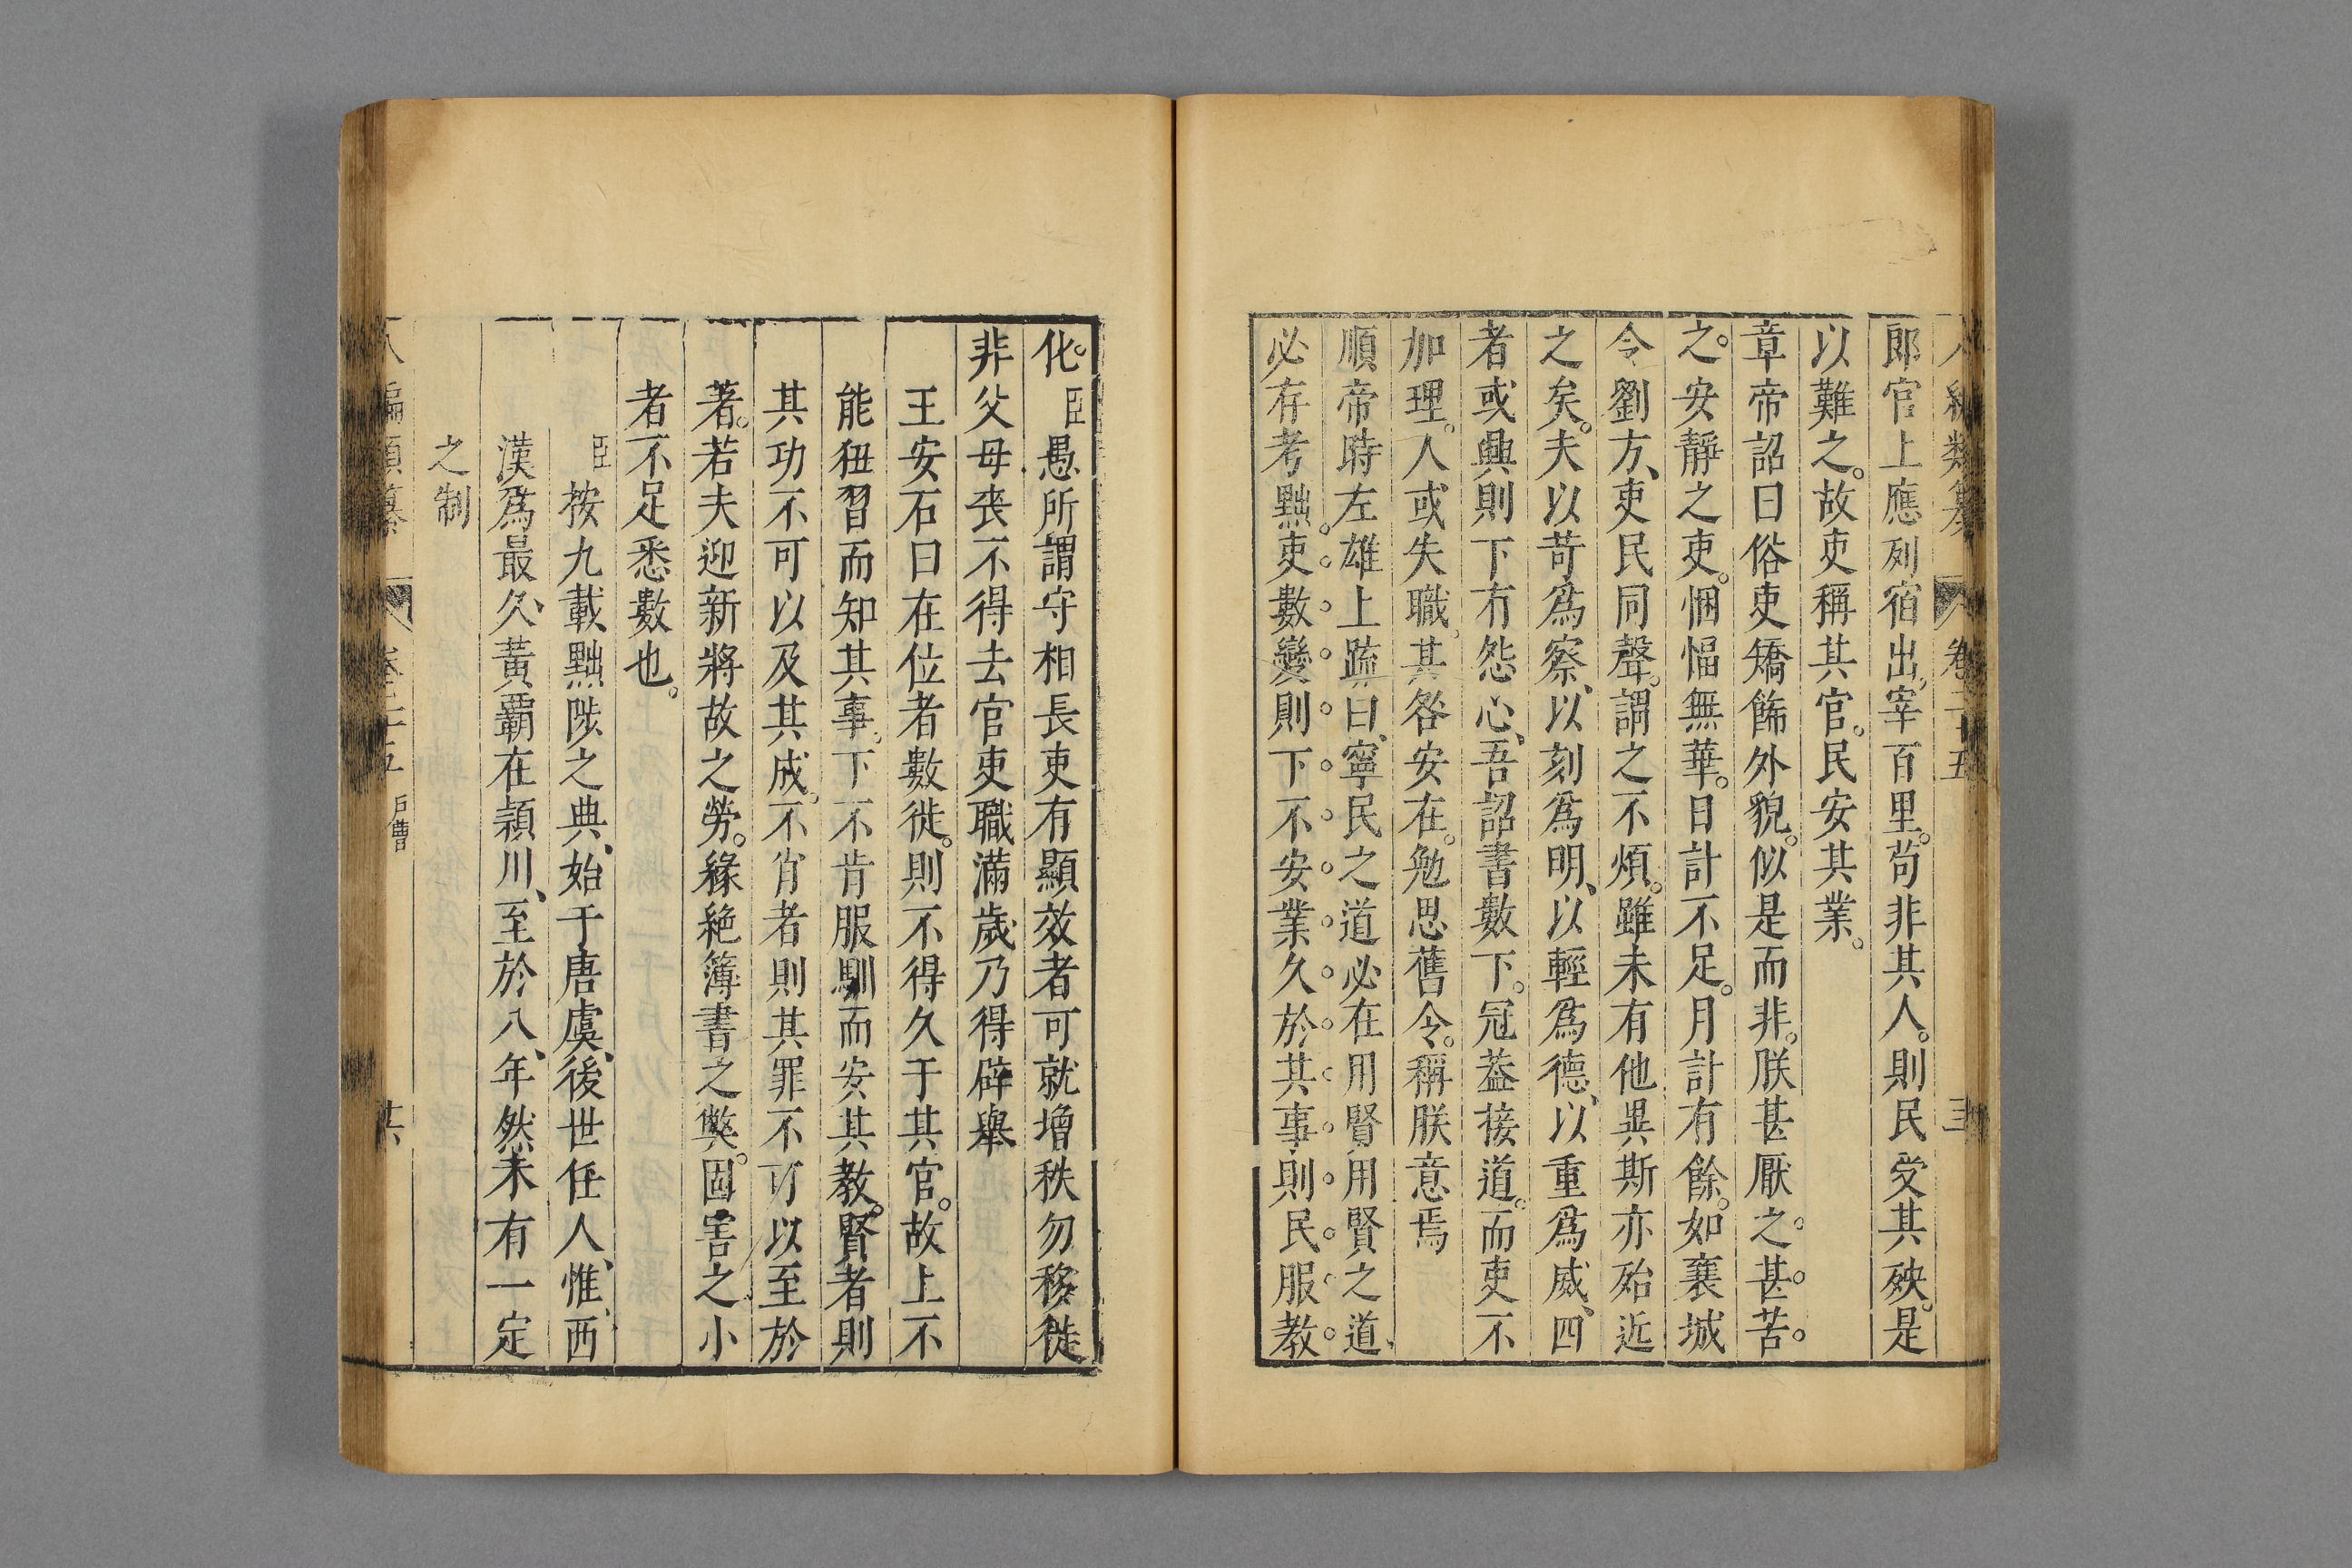 八編類纂 卷二十五
郎官上應列宿出宰百里。苟非其人。則民受其殃。是
以難之。故吏稱其官。民安其業。
章帝詔曰俗吏矯餙外貌。似是而非。朕甚厭之。甚苦。
之。安靜之吏。悃愊無華。日計不足。月計有餘。如襄城
令劉方、吏民同聲。謂之不煩。雖未有他異斯亦殆近
之矣。夫以苛爲察、以刻爲明、以輕爲德、以重爲威、四
者或興則下有怨心、吾詔書數下。冠葢接道。而吏不
加理。人或失職。其咎安在。勉思舊令。稱朕意焉
順帝時左雄上疏曰、寧民之道必在用賢用賢之道、
必存考黜。吏數變則下不安業久於其事則民服教
化。臣愚所謂守相長吏有顯效者可就增秩勿移徙
非父母喪不得去官吏職滿歲乃得辟舉
王安石曰在位者數徙。則不得久于其官。故上不
能狃習而知其事。下不肯服馴而安其教。賢者則
其功不可以及其成。不肖者則其罪不可以至於
著。若夫迎新將故之勞。緣絶簿書之獘。固害之小
者不足悉數也。
臣按九載黜陟之典、始于唐虞、後世任人、惟西
漢爲最久、黃覇在潁川、至於八年、然未有一定
之制
八編類纂 卷二十五 戶曹